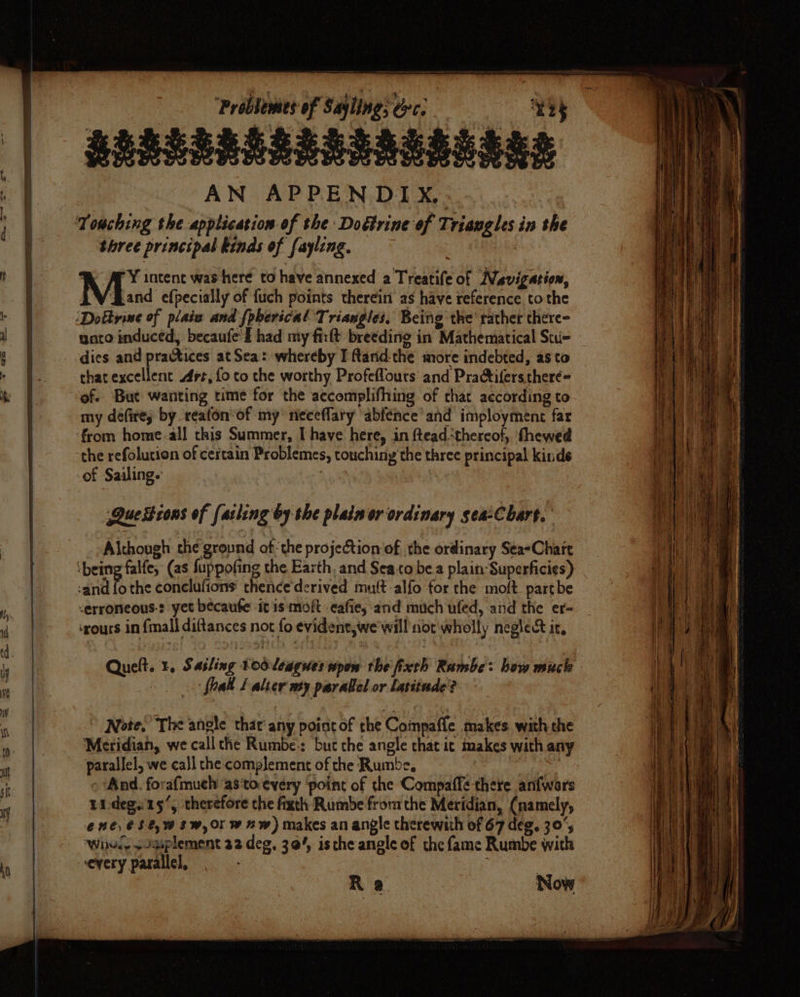 Problemes of Sayling, &c.
AN APPENDIX.
Touching the application of the Doctrine of Triangles in the
three principal kinds of ſayling.
MY intent was here to have annexed a Treatiſe of Navigation,
and eſpecially of ſuch points therein as have reference to the
Doctrine of plain and ſpherical Triangles. Being the rather there-
unto induced, becauſe I had my firſt breeding in Mathematical Stu-
dies and practices at Sea: whereby I ſtand the more indebted, as to
that excellent Art, ſo to the worthy Profeſſours and Practiſers there-
of. But wanting time for the accompliſhing of that according to
my deſire, by reaſon of my neceſſary abſence and imployment far
from home all this Summer, I have here, in ſtead thereof, ſhewed
the reſolution of certain Problemes, touching the three principal kinds
of Sailing.
Queſtions of ſailing by the plain or ordinary sea-Chart.
Although the ground of the projection of the ordinary Sea-Chart
being falſe, (as ſuppoſing the Earth and Sea to be a plain Superficies)
and ſo the concluſions thence derived muſt alſo for the moſt part be
erroneous: yet becauſe it is moſt eaſie, and much uſed, and the er-
rours in ſmall diſtances not ſo evident, we will not wholly neglect it.
Queſt. 1. Sailing 100 leagues upon the ſixth Rumbe: how much
ſhall I alter my parallel or latitude?
Note, The angle that any point of the Compaſſe makes with the
Meridian, we call the Rumbe: but the angle that it makes with any
parallel, we call the complement of the Rumbe.
And foraſmuch as to every point of the Compaſſe there anſwars
11 deg. 15′, therefore the ſixth Rumbe from the Meridian, (namely,
ene, eſe, wsw, or wnw) makes an angle therewith of 67 deg. 30′,
whoſe complement 22 deg. 30′, is the angle of the ſame Rumbe with
every parallel.
R 2 Now